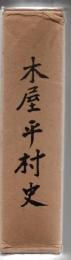 木屋平村史